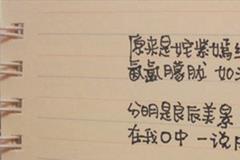 原来是姹紫嫣
氤氲朦胧 如
分明是良辰美景
在我口中 一说